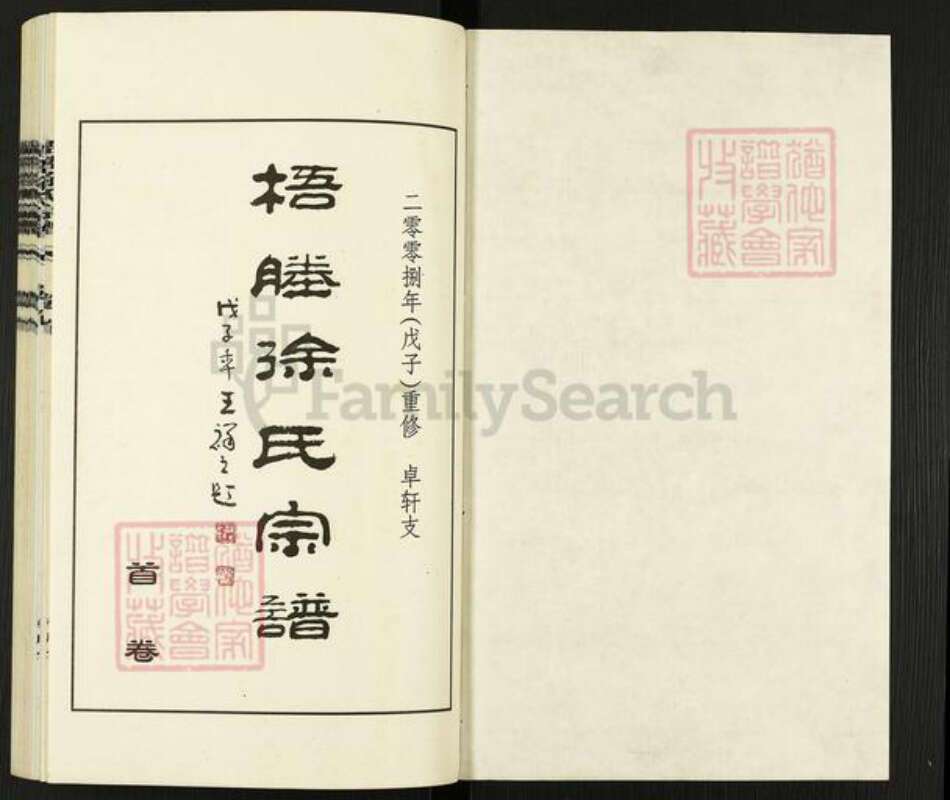 二零零捌年(戊子)重修 卓轩支
梧塍徐氏宗譜
戊子年王祥之题
首卷
猶他家
譜學會
收藏
猶他家
譜學會
收藏
FamilySearch